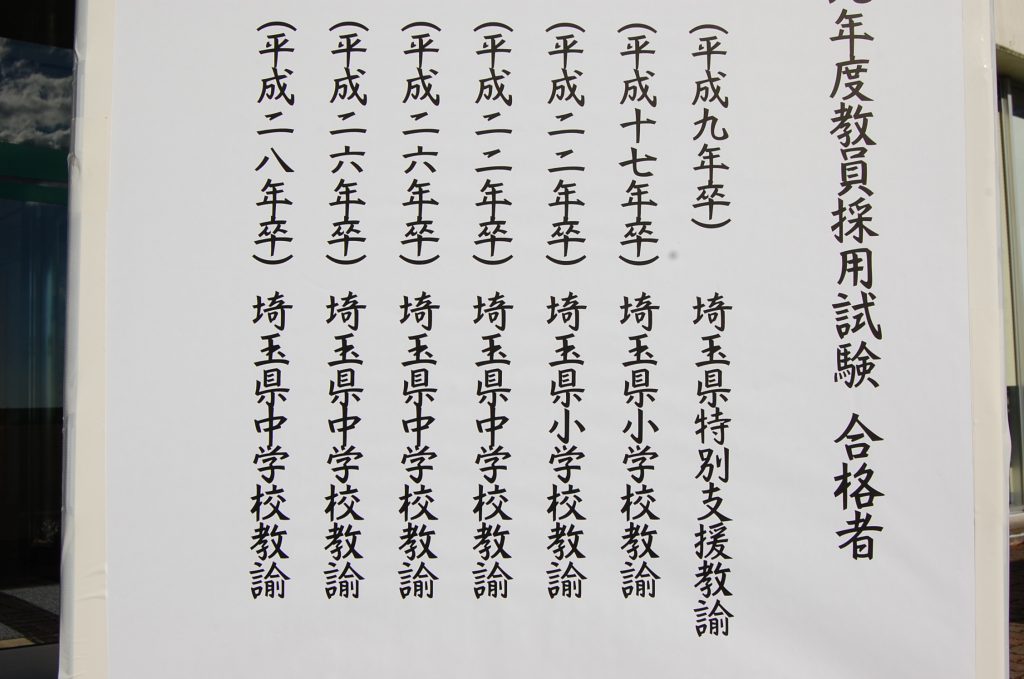 年度教員採用試験 合格者
(平成九年卒) 埼玉県特別支援教諭
(平成十七年卒) 埼玉県小学校教諭
(平成二二年卒) 埼玉県小学校教諭
(平成二二年卒) 埼玉県中学校教諭
(平成二六年卒) 埼玉県中学校教諭
(平成二六年卒) 埼玉県中学校教諭
(平成二八年卒) 埼玉県中学校教諭